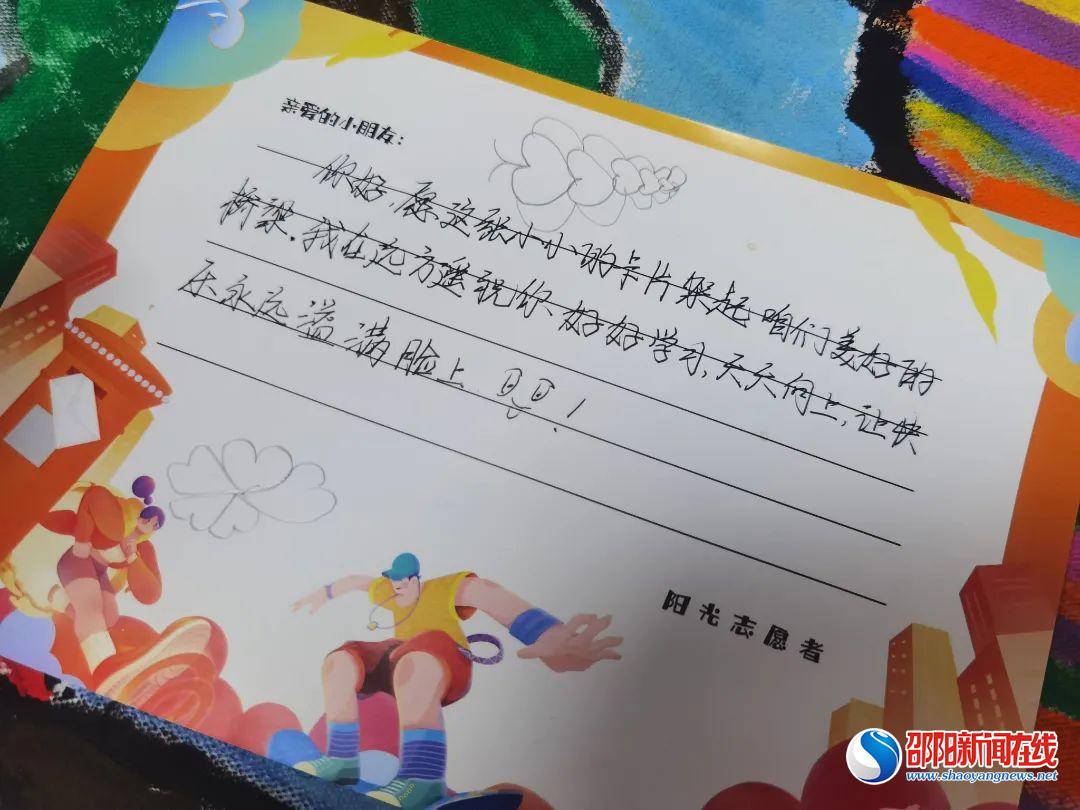 亲爱的小朋友：
你好，愿这张小小的卡片架起咱们美好的
桥梁．我在远方遥祝你好好学习，天天向上，让快
乐永远溢满脸上！
阳光志愿者
邵阳新闻在线
www.shaoyangnews.net